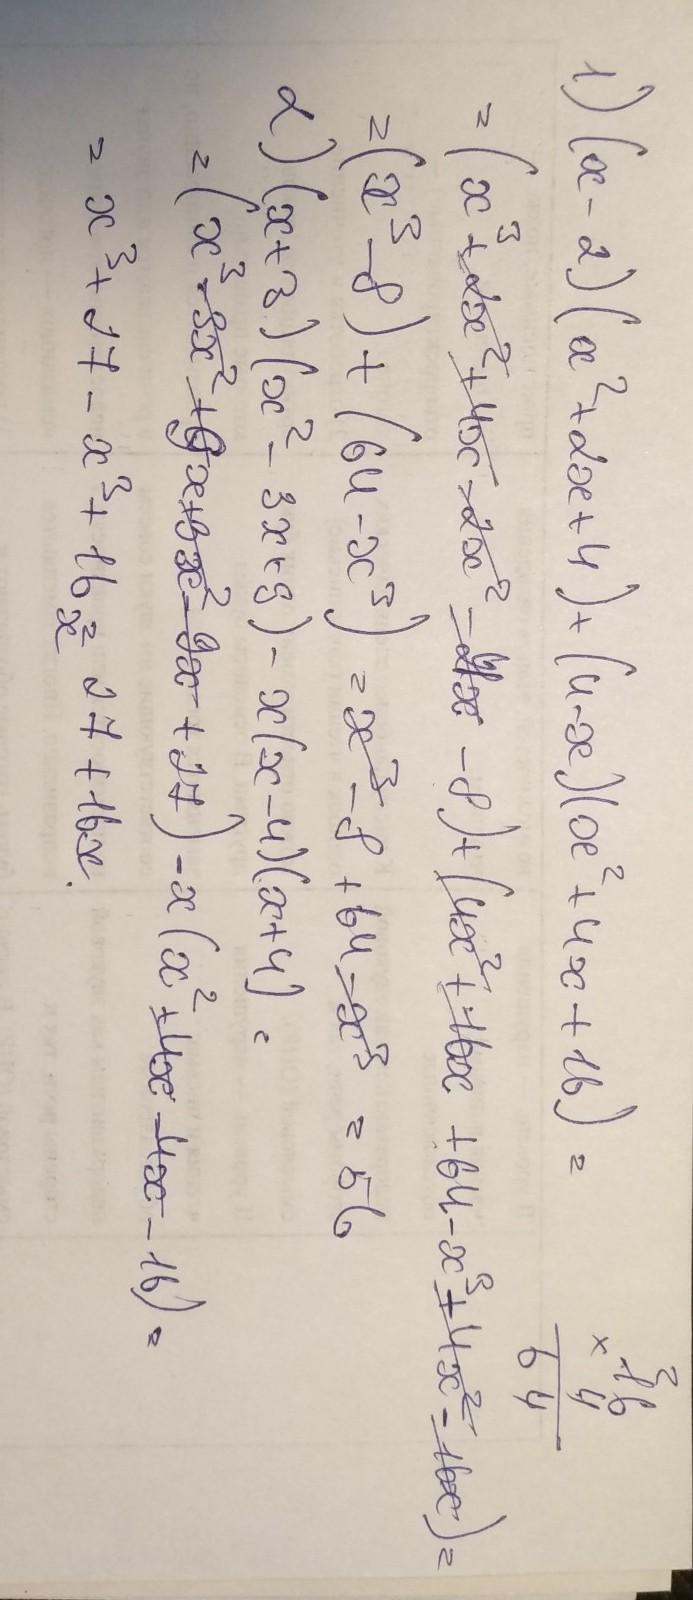 1) (x-2)(x²+2x+4)+(4-x)(x²+4x+16)=
=(x³+2x²+4x-2x²-4x-8)+(4x²+16x+64-x³+4x²-16x)=
=(x³-8)+(64-x³)=x³-8+64-x³=56
2) (x+3)(x²-3x+9)-x(x-4)(x+4)=
=(x³-3x²+9x+3x²-9x+27)-x(x²+4x-4x-16)=
=x³+27-x³+16x=27+16x.
2
16
× 4
64